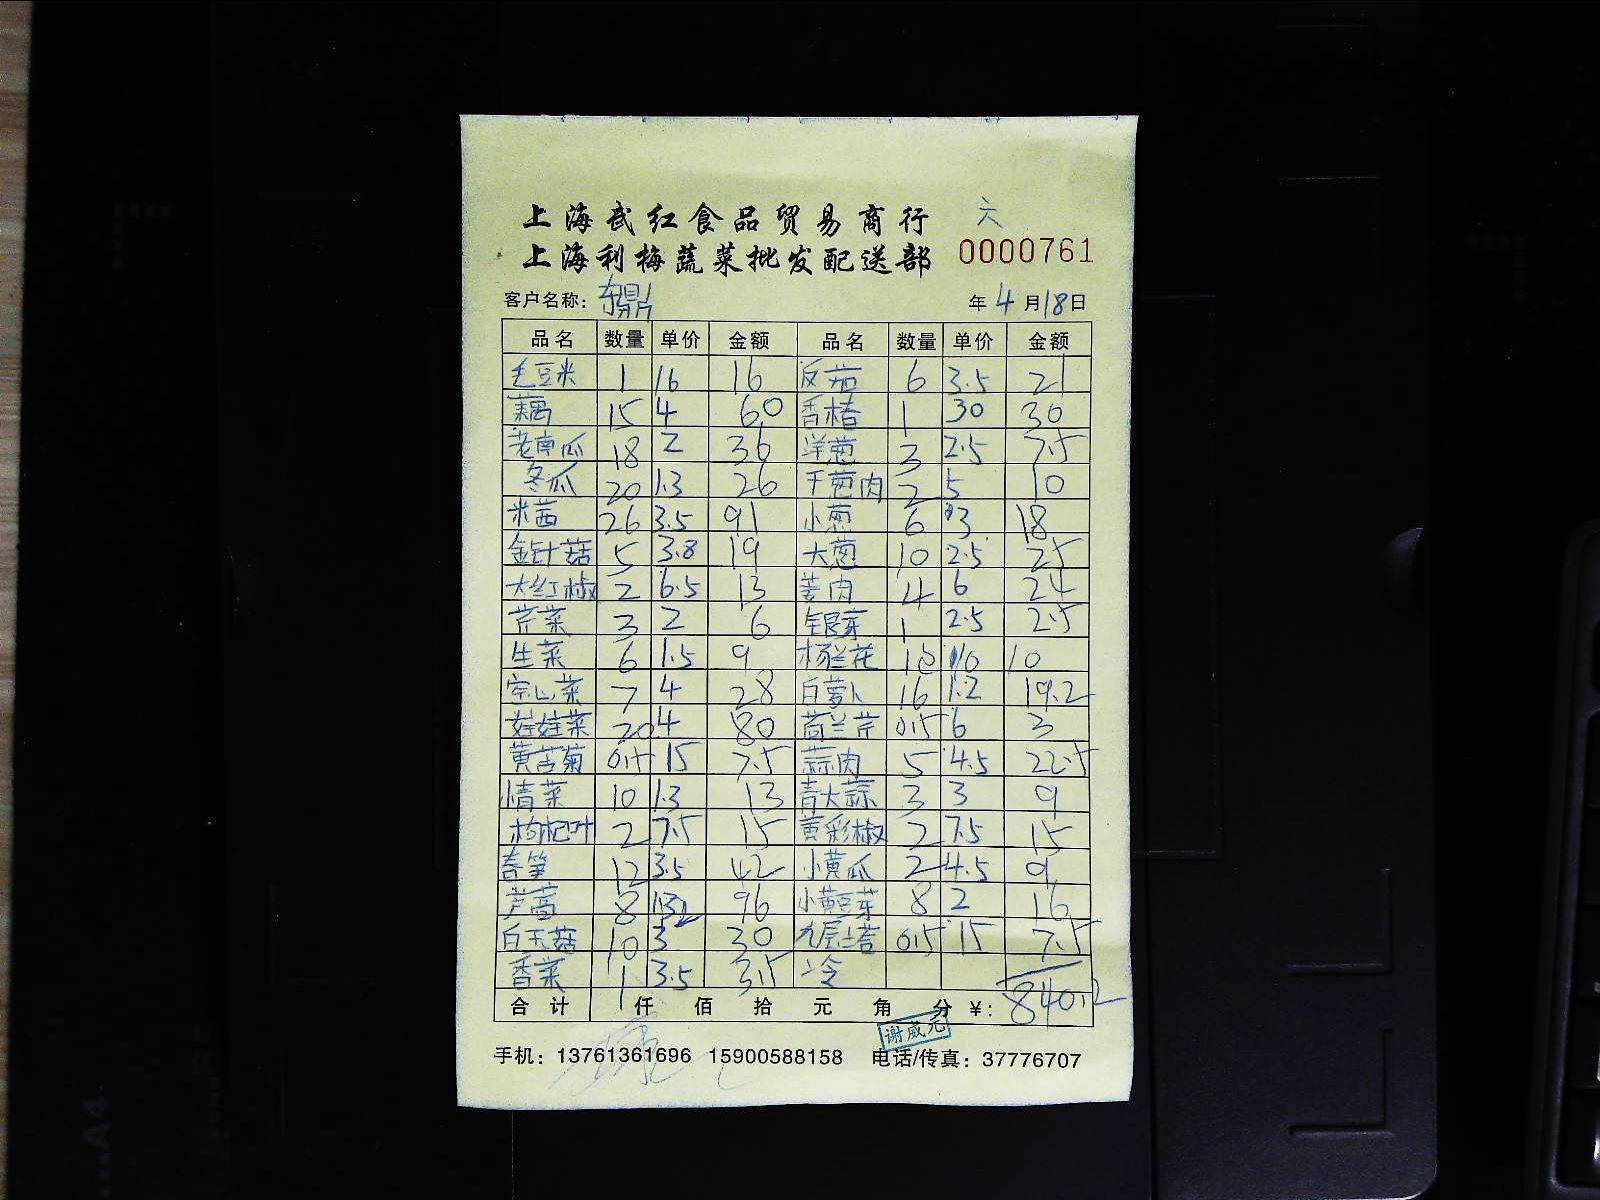 六
上海武红食品贸易商行
上海利梅蔬菜批发配送部 0000761
客户名称: 东鼎 年 4 月 18 日
品名 数量 单价 金额 品名 数量 单价 金额
毛豆米 1 16 16 反茄 6 3.5 21
藕 15 4 60 香椿 1 30 30
老南瓜 18 2 36 洋葱 3 2.5 7.5
冬瓜 20 1.3 26 干葱肉 2 5 10
米茜 26 3.5 91 小葱 6 3 18
金针菇 5 3.8 19 大葱 10 2.5 25
大红椒 2 6.5 13 姜肉 4 6 24
芹菜 3 2 6 银芽 1 2.5 2.5
生菜 6 1.5 9 杨兰花 10 10
空心菜 7 4 28 白萝卜 16 1.2 19.2
娃娃菜 20 4 80 荷兰芹 0.5 6 3
黄苦菊 0.5 15 7.5 蒜肉 5 4.5 22.5
情菜 10 1.3 13 青大蒜 3 3 9
枸杞叶 2 7.5 15 黄彩椒 2 7.5 15
春笋 12 3.5 42 小黄瓜 2 4.5 9
芦蒿 8 96 小黄豆芽 8 2 16
白玉菇 10 3 30 九层塔 0.5 15 7.5
香菜 1 3.5 3.5
合计 仟 佰 拾 元 角 分 ¥: 840.2
谢威元
手机: 13761361696 15900588158 电话/传真: 37776707